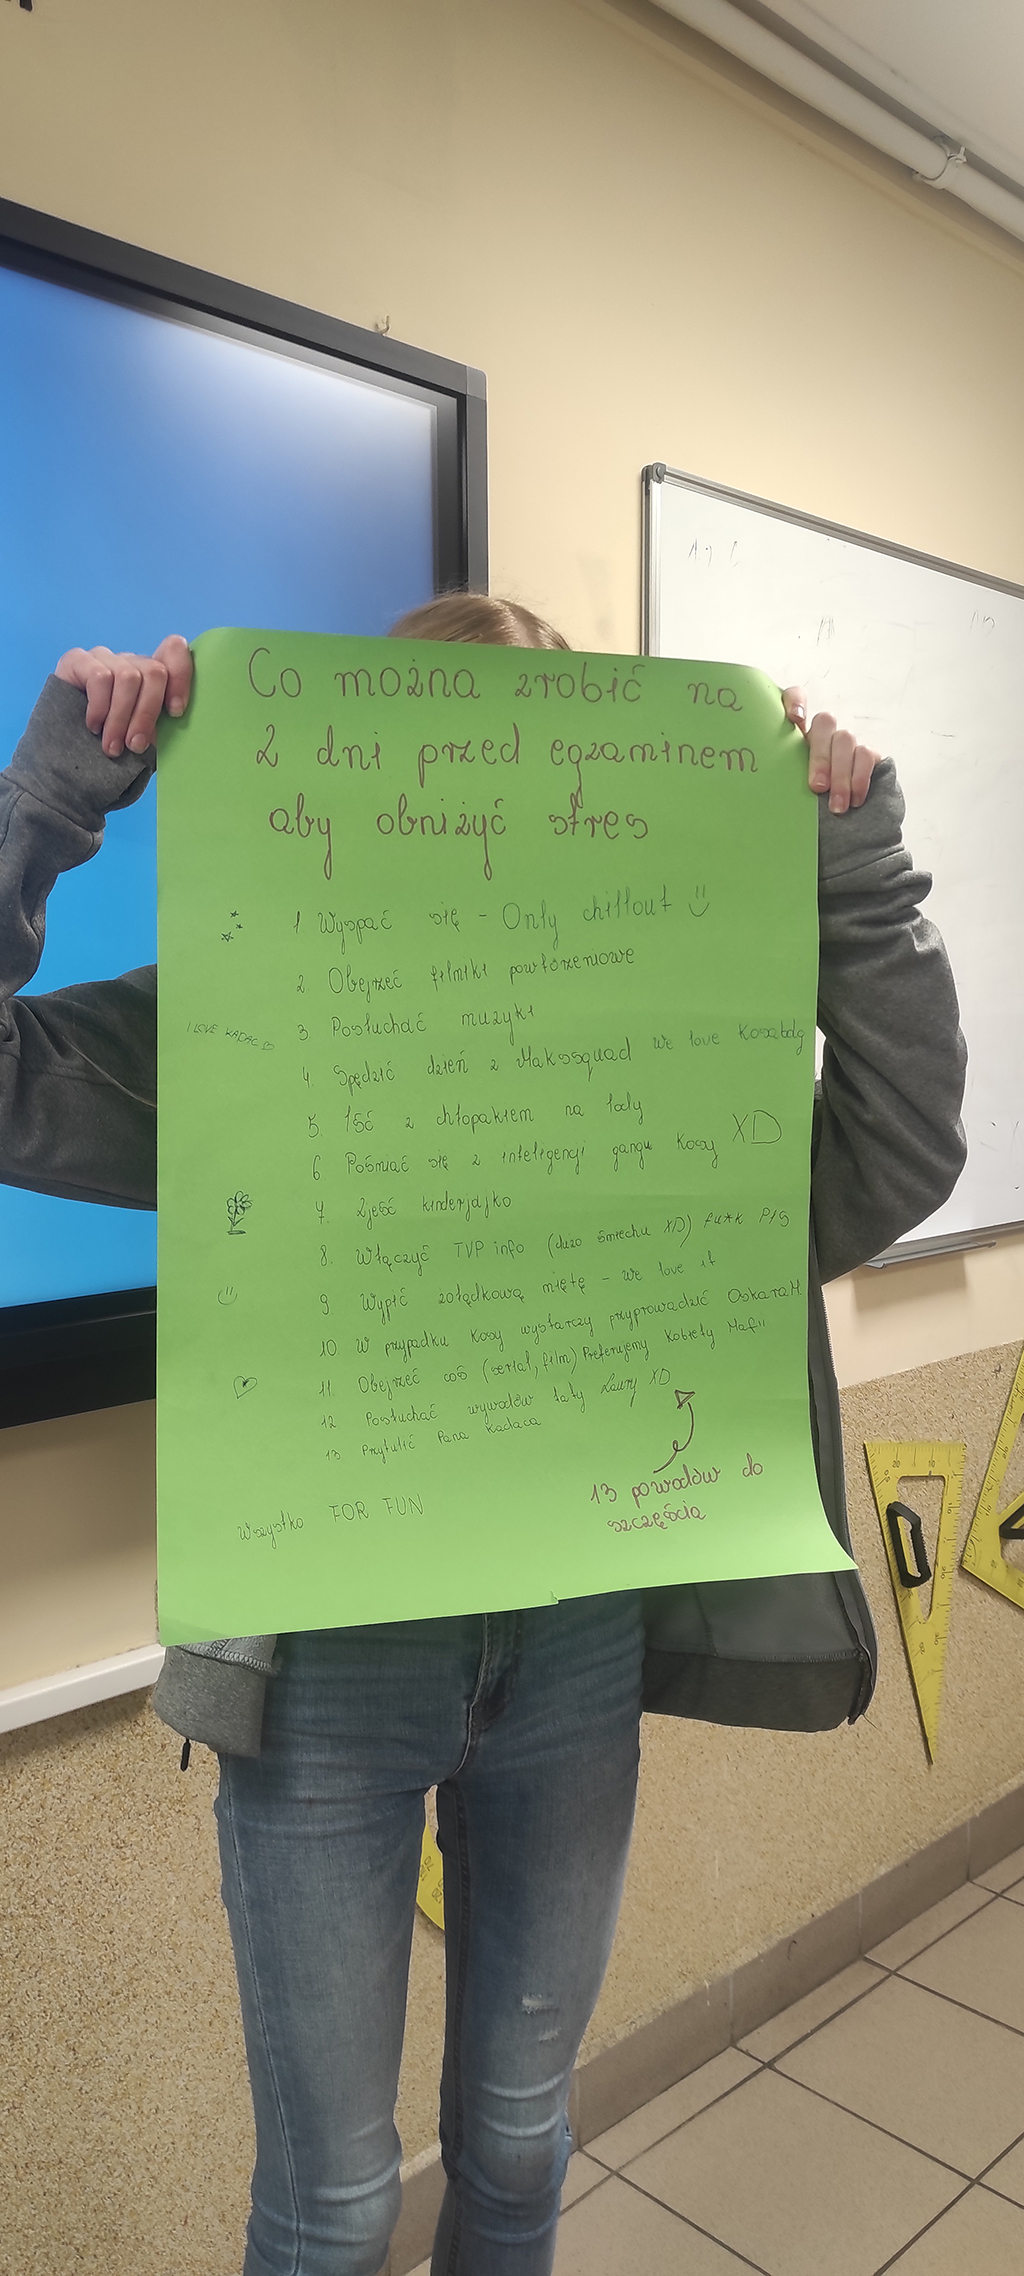 Co można zrobić na
2 dni przed egzaminem
aby obniżyć stres
1 Wyspać się - Only chillout
2. Obejrzeć filmiki powtórzeniowe
I LOVE KADAC
3 Posłuchać muzyki
4. Spędzić dzień z Makssquad We love
5. Iść z chłopakiem na lody
6 Pośmiać się z inteligencji gangu Kosy XD
7. Zjeść kinderjajko
8. Włączyć TVP info (dużo śmiechu XD) fu*k PIS
9. Wypić żołądkową miętę - we love it
10 W przypadku Kosy wystarczy przyprowadzić Oskara M.
11. Obejrzeć coś (serial, film) Preferujemy Kobiety Mafii
12 Posłuchać wywodów taty Laury XD
13 Przytulić Pana Kadaca
13 powodów do
szczęścia
Wszystko FOR FUN